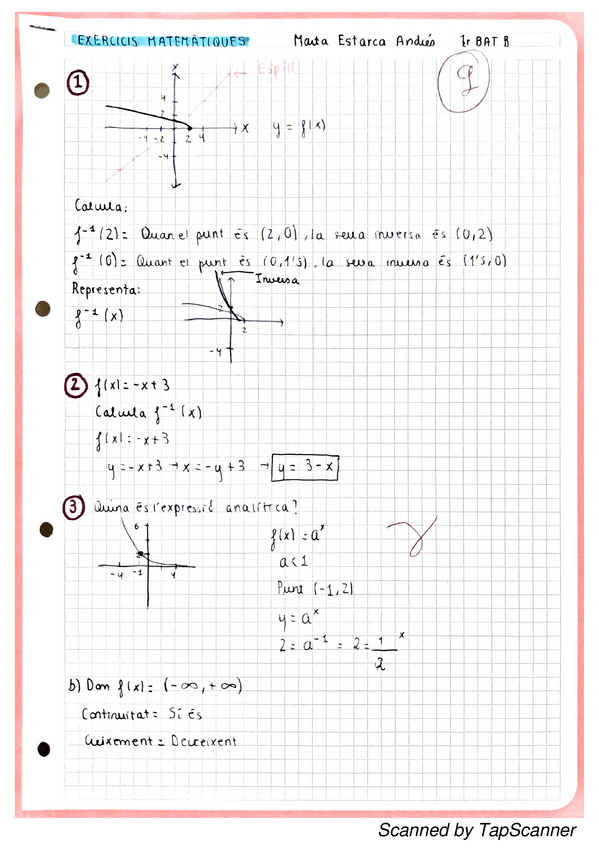 EXERCICIS MATEMÀTIQUES Marta Estarca Andiés 1r BAT B
9
① x ← Espill
4
2
-4 -2 2 4 x y = f(x)
-4
Calcula:
f⁻¹(2) = Quan el punt és (2,0), la seva inversa és (0,2)
f⁻¹(0) = Quant el punt és (0,1's), la seva inversa és (1's,0)
Representa: Inversa
f⁻¹(x) 2
2
-4
② f(x) = -x+3
Calcula f⁻¹(x)
f(x) = -x+3
y = -x+3 → x = -y+3 → y = 3-x
③ Quina és l'expressió analítica?
6 f(x) = aˣ
-4 -1 4 a<1
Punt (-1,2)
y = aˣ
2 = a⁻¹ = 2 = 1/2 ˣ
b) Dom f(x) = (-∞,+∞)
Continuïtat = Sí és
Creixement = Decreixent
Scanned by TapScanner